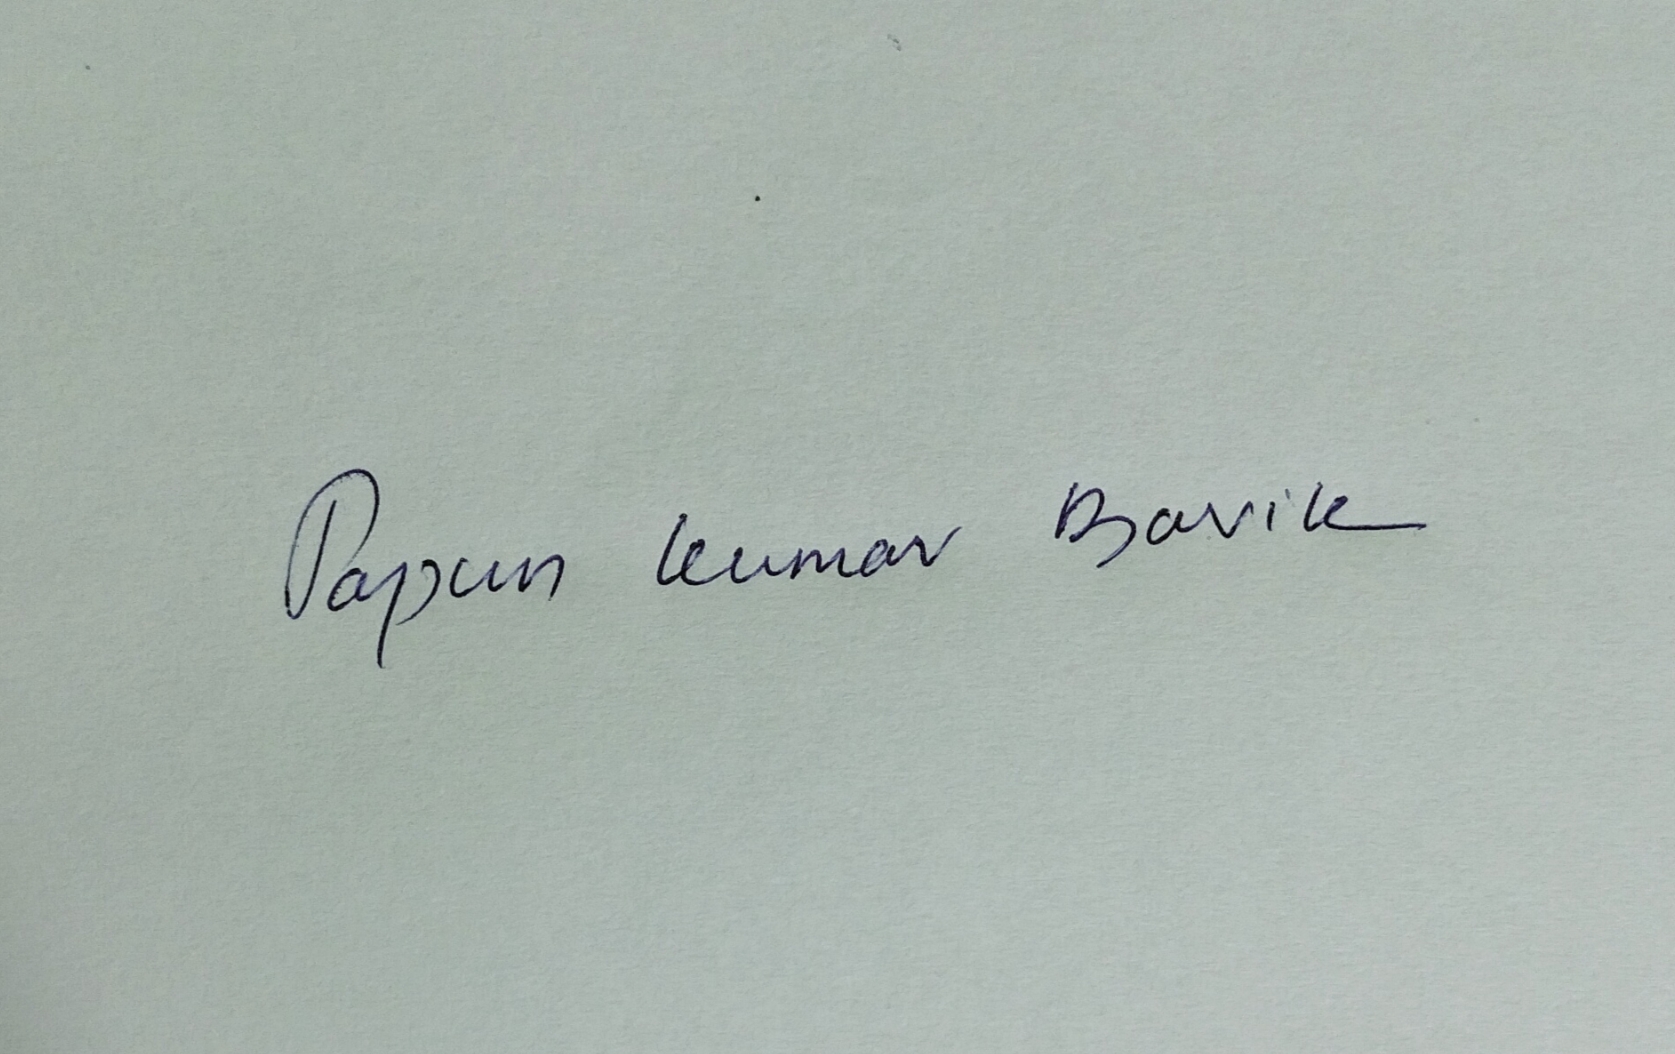 Papun kumar Barik